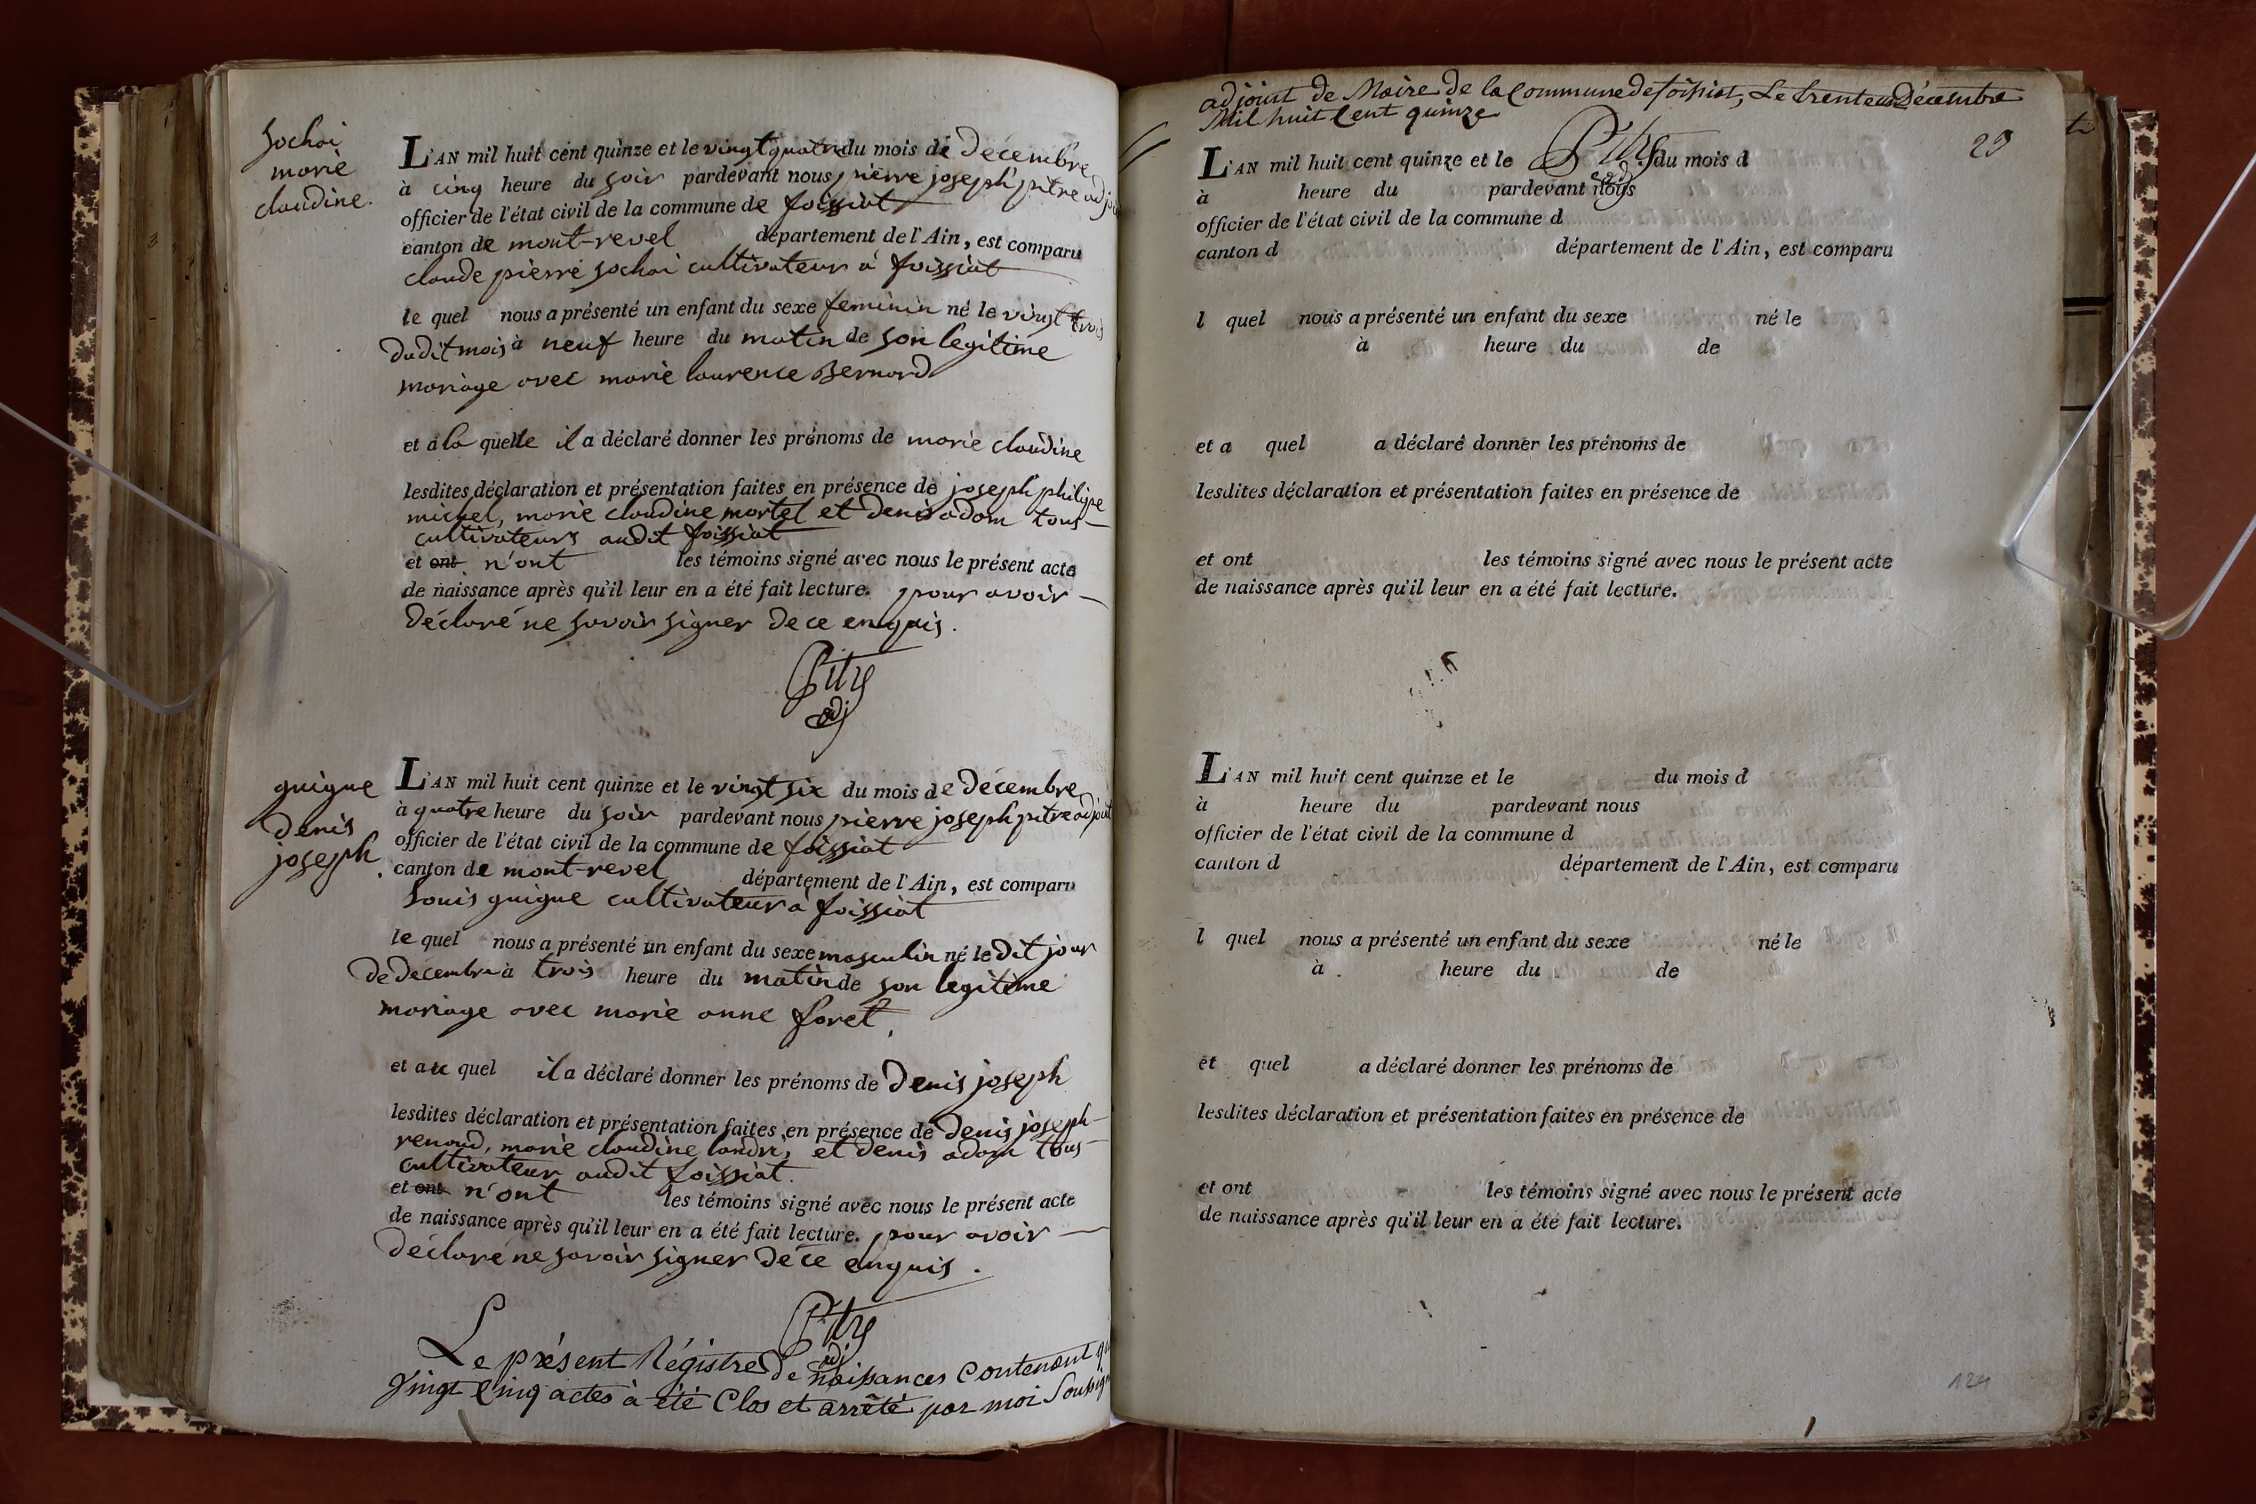 Sochai
marie
claudine.
L'AN mil huit cent quinze et le vingt quatre du mois de decembre
à cinq heure du soir pardevant nous pierre joseph pitre adjoi
officier de l'état civil de la commune de foissiat
canton de mont-revel département de l'Ain, est comparu
claude pierre sochai cultivateur a foissiat
le quel nous a présenté un enfant du sexe feminin né le vingt trois
dudit mois à neuf heure du matin de son legitime
mariage avec marie laurence Bernard
et a la quelle il a déclaré donner les prénoms de marie claudine
lesdites déclaration et présentation faites en présence de joseph philipe
michel, marie claudine mortel et denis adam tous
cultivateurs audit foissiat
et ont n'ont les témoins signé avec nous le présent acte
de naissance après qu'il leur en a été fait lecture. pour avoir
déclaré ne savoir signer de ce enquis.
Pitre
adj
guigue
denis
joseph.
L'AN mil huit cent quinze et le vingt six du mois de decembre
à quatre heure du soir pardevant nous pierre joseph pitre adjoint
officier de l'état civil de la commune de foissiat
canton de mont-revel département de l'Ain, est comparu
Louis guigue cultivateur a foissiat
le quel nous a présenté un enfant du sexe masculin né le dit jour
de decembre à trois heure du matin de son legitime
mariage avec marie anne foret,
et au quel il a déclaré donner les prénoms de Denis joseph
lesdites déclaration et présentation faites en présence de denis joseph
renoud, marie claudine landri, et denis adam tous
cultivateur audit foissiat.
et ont n'ont les témoins signé avec nous le présent acte
de naissance après qu'il leur en a été fait lecture. pour avoir
déclaré ne savoir signer de ce enquis.
Pitre
adj
Le présent Régistre de naissances Contenant
Vingt Cinq actes à été Clos et arrêté par moi Soussig
adjoint de Maire de la Commune de foissiat, Le trente un Décembre
Mil huit Cent quinze
Pitre
adj
29
L'AN mil huit cent quinze et le du mois d
à heure du pardevant nous
officier de l'état civil de la commune d
canton d département de l'Ain, est comparu
l quel nous a présenté un enfant du sexe né le
à heure du de
et a quel a déclaré donner les prénoms de
lesdites déclaration et présentation faites en présence de
et ont les témoins signé avec nous le présent acte
de naissance après qu'il leur en a été fait lecture.
L'AN mil huit cent quinze et le du mois d
à heure du pardevant nous
officier de l'état civil de la commune d
canton d département de l'Ain, est comparu
l quel nous a présenté un enfant du sexe né le
à heure du de
et quel a déclaré donner les prénoms de
lesdites déclaration et présentation faites en présence de
et ont les témoins signé avec nous le présent acte
de naissance après qu'il leur en a été fait lecture.
124